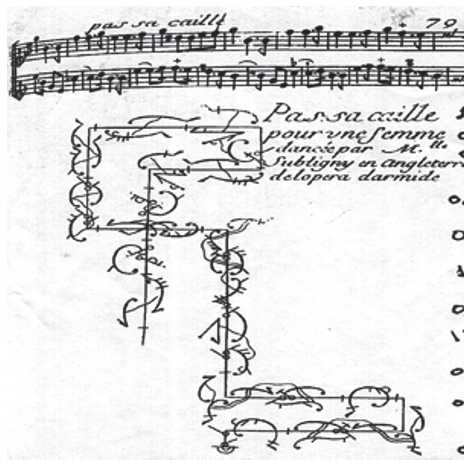 pas sa caille
79
Passacaille
pour vne femme
dancée par M.lle
Subligny en angleterre
de lopera darmide